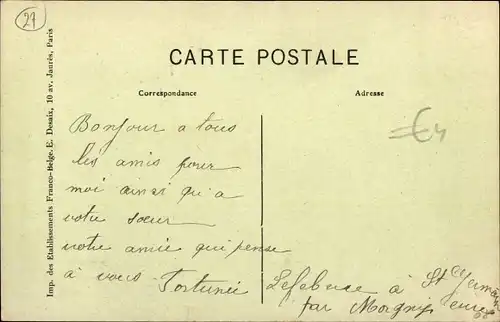 27
CARTE POSTALE
Correspondance
Adresse
Imp. des Etablissements Franco-Belge. E. Desaix, 10 av. Jaurès, Paris
Bonjour a tous
les amis pour
moi ainsi qu'a
votre sœur
votre amie qui pense
à vous Fortunée Lefebvre à St Germain
par Morgny Eure
€4